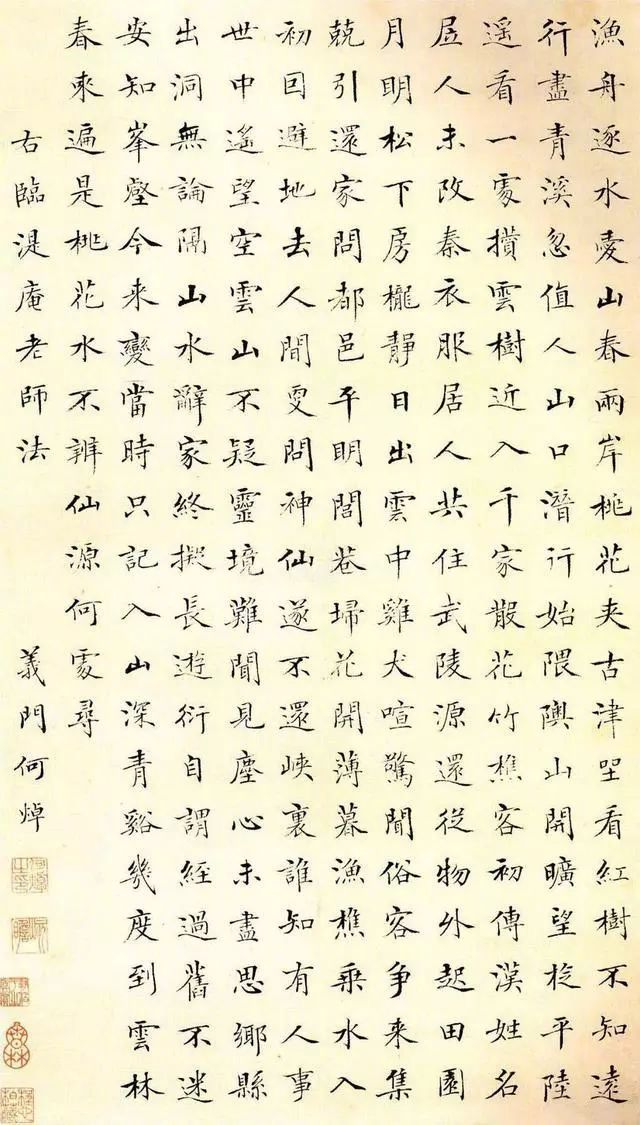 漁舟逐水愛山春兩岸桃花夾古津坐看紅樹不知遠
行盡青溪忽值人山口潛行始隈隩山開曠望旋平陸
遥看一處攢雲樹近入千家散花竹樵客初傳漢姓名
居人未改秦衣服居人共住武陵源還從物外起田園
月明松下房櫳靜日出雲中雞犬喧驚聞俗客争来集
兢引還家問都邑平明閭巷埽花開薄暮漁樵乗水入
初因避地去人間更問神仙遂不還峽裏誰知有人事
世中遥望空雲山不疑靈境難聞見塵心未盡思鄉縣
出洞無論隔山水辭家終擬長遊衍自謂經過舊不迷
安知峯壑今来變當時只記入山深青谿幾度到雲林
春來遍是桃花水不辨仙源何處尋
右臨湜庵老師法 義門何焯